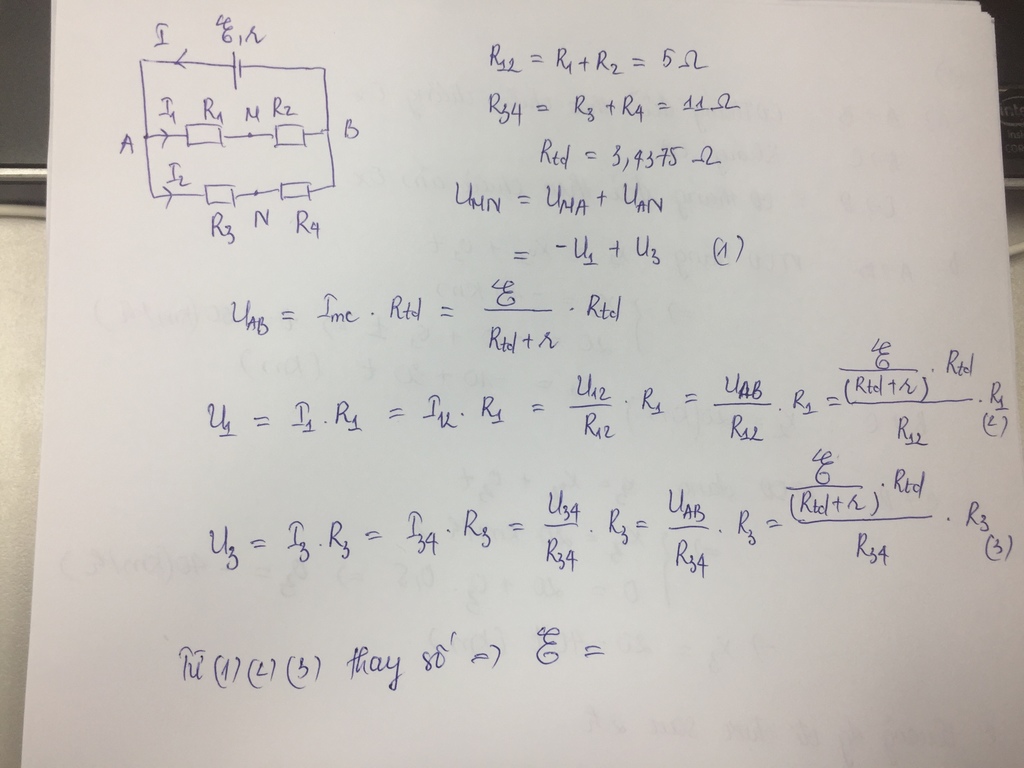 I ℰ, r
I₁ R₁ M R₂
A B
I₂
R₃ N R₄
R₁₂ = R₁ + R₂ = 5 Ω
R₃₄ = R₃ + R₄ = 11 Ω
Rtđ = 3,4375 Ω
U_MN = U_MA + U_AN
= -U₁ + U₃ (1)
U_AB = I_mc . Rtđ = ℰ / (Rtđ + r) . Rtđ
U₁ = I₁ . R₁ = I₁₂ . R₁ = U₁₂ / R₁₂ . R₁ = U_AB / R₁₂ . R₁ = (ℰ / (Rtđ + r) . Rtđ) / R₁₂ . R₁ (2)
U₃ = I₃ . R₃ = I₃₄ . R₃ = U₃₄ / R₃₄ . R₃ = U_AB / R₃₄ . R₃ = (ℰ / (Rtđ + r) . Rtđ) / R₃₄ . R₃ (3)
Từ (1) (2) (3) thay số => ℰ =